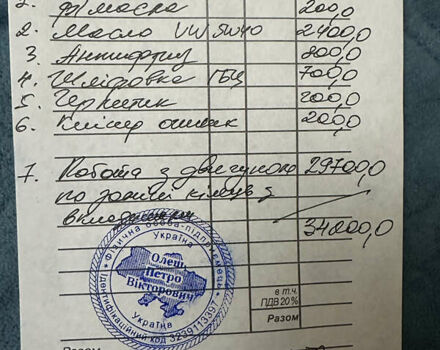 1. ф. масла 200,0
2. Масло VW 5W40 2400,0
3. Антифриз 800,0
4. Шліфовка ГБЦ 700,0
5. Герметик 200,0
6. ошибок 200,0
7. Работа з двигуном 29700,0
по заміні кілець і
34000,0
ФІЗИЧНА ОСОБА-ПІДПРИЄМЕЦЬ
Україна
Олець
Петро
Вікторович
Україна
Ідентифікаційний код 3239113397
в т.ч.
ПДВ 20%
Разом